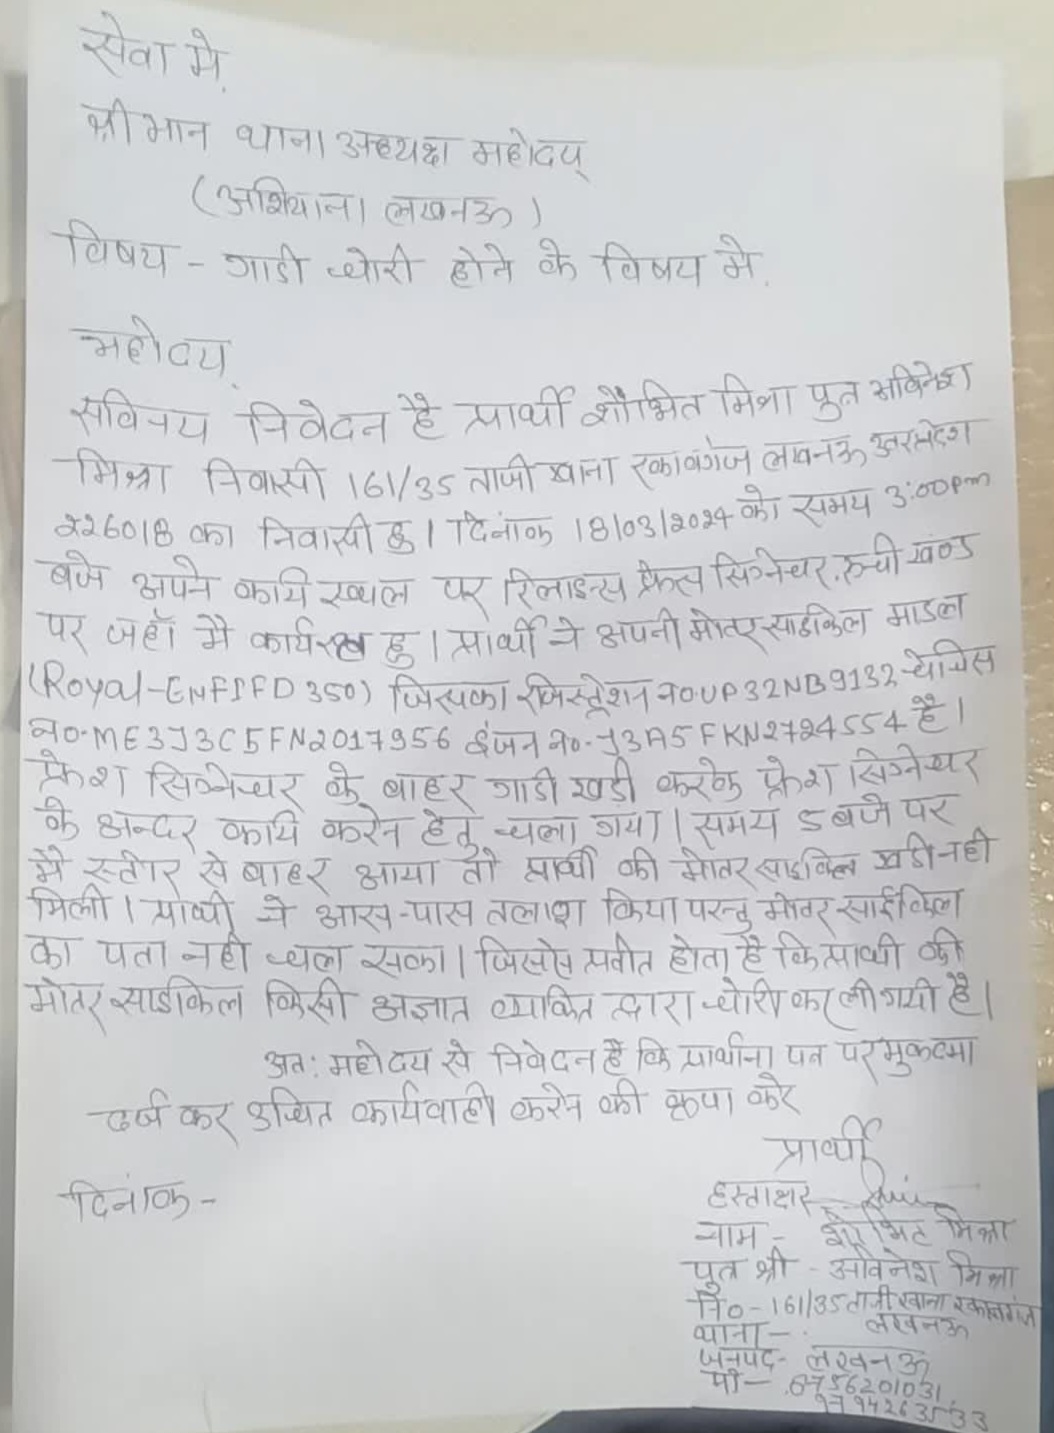 सेवा मे,
श्रीमान थाना अध्यक्ष महोदय्
(अशियाना लखनऊ)
विषय - गाडी चोरी होने के विषय मे.
महोदय,
सविनय निवेदन है प्रार्थी शोभित मिश्रा पुत्र अविनेश
मिश्रा निवासी 161/35 ताजी खाना रकाबगंज लखनऊ उत्तरप्रदेश
226018 का निवासी हु। दिनांक 18/03/2024 को समय 3:00pm
बजे अपने कार्य स्थल पर रिलाइन्स फ्रेस सिग्नेचर, रूची खण्ड
पर जहाँ मै कार्यरत हु। प्रार्थी ने अपनी मोटर साइकिल माडल
(Royal-ENFIFD 350) जिसका रजिस्ट्रेशन न०UP32NB9132 चेचिस
न०-ME3J3C5FN2017956 इंजन न०-J3A5FKN2724554 है।
फ्रेश सिग्नेचर के बाहर गाडी खडी करके फ्रेश सिग्नेचर
के अन्दर कार्य करने हेतु चला गया। समय 5 बजे पर
मै स्टोर से बाहर आया तो प्रार्थी की मोटर साइकिल खडी नही
मिली। प्रार्थी ने आस-पास तलाश किया परन्तु मोटर साईकिल
का पता नही चल सका। जिससे प्रतीत होता है कि प्रार्थी की
मोटर साइकिल किसी अज्ञात व्यक्ति द्वारा चोरी कर ली गयी है।
अत: महोदय से निवेदन है कि प्रार्थना पत्र पर मुकदमा
दर्ज कर उचित कार्यवाही करने की कृपा करे
प्रार्थी
दिनांक -
हस्ताक्षर
नाम - शोभित मिश्रा
पुत्र श्री - अविनेश मिश्रा
नि०-161/35 ताजी खाना रकाबगंज
लखनऊ
थाना -
जनपद- लखनऊ
मो - 6756201031,
9794263533